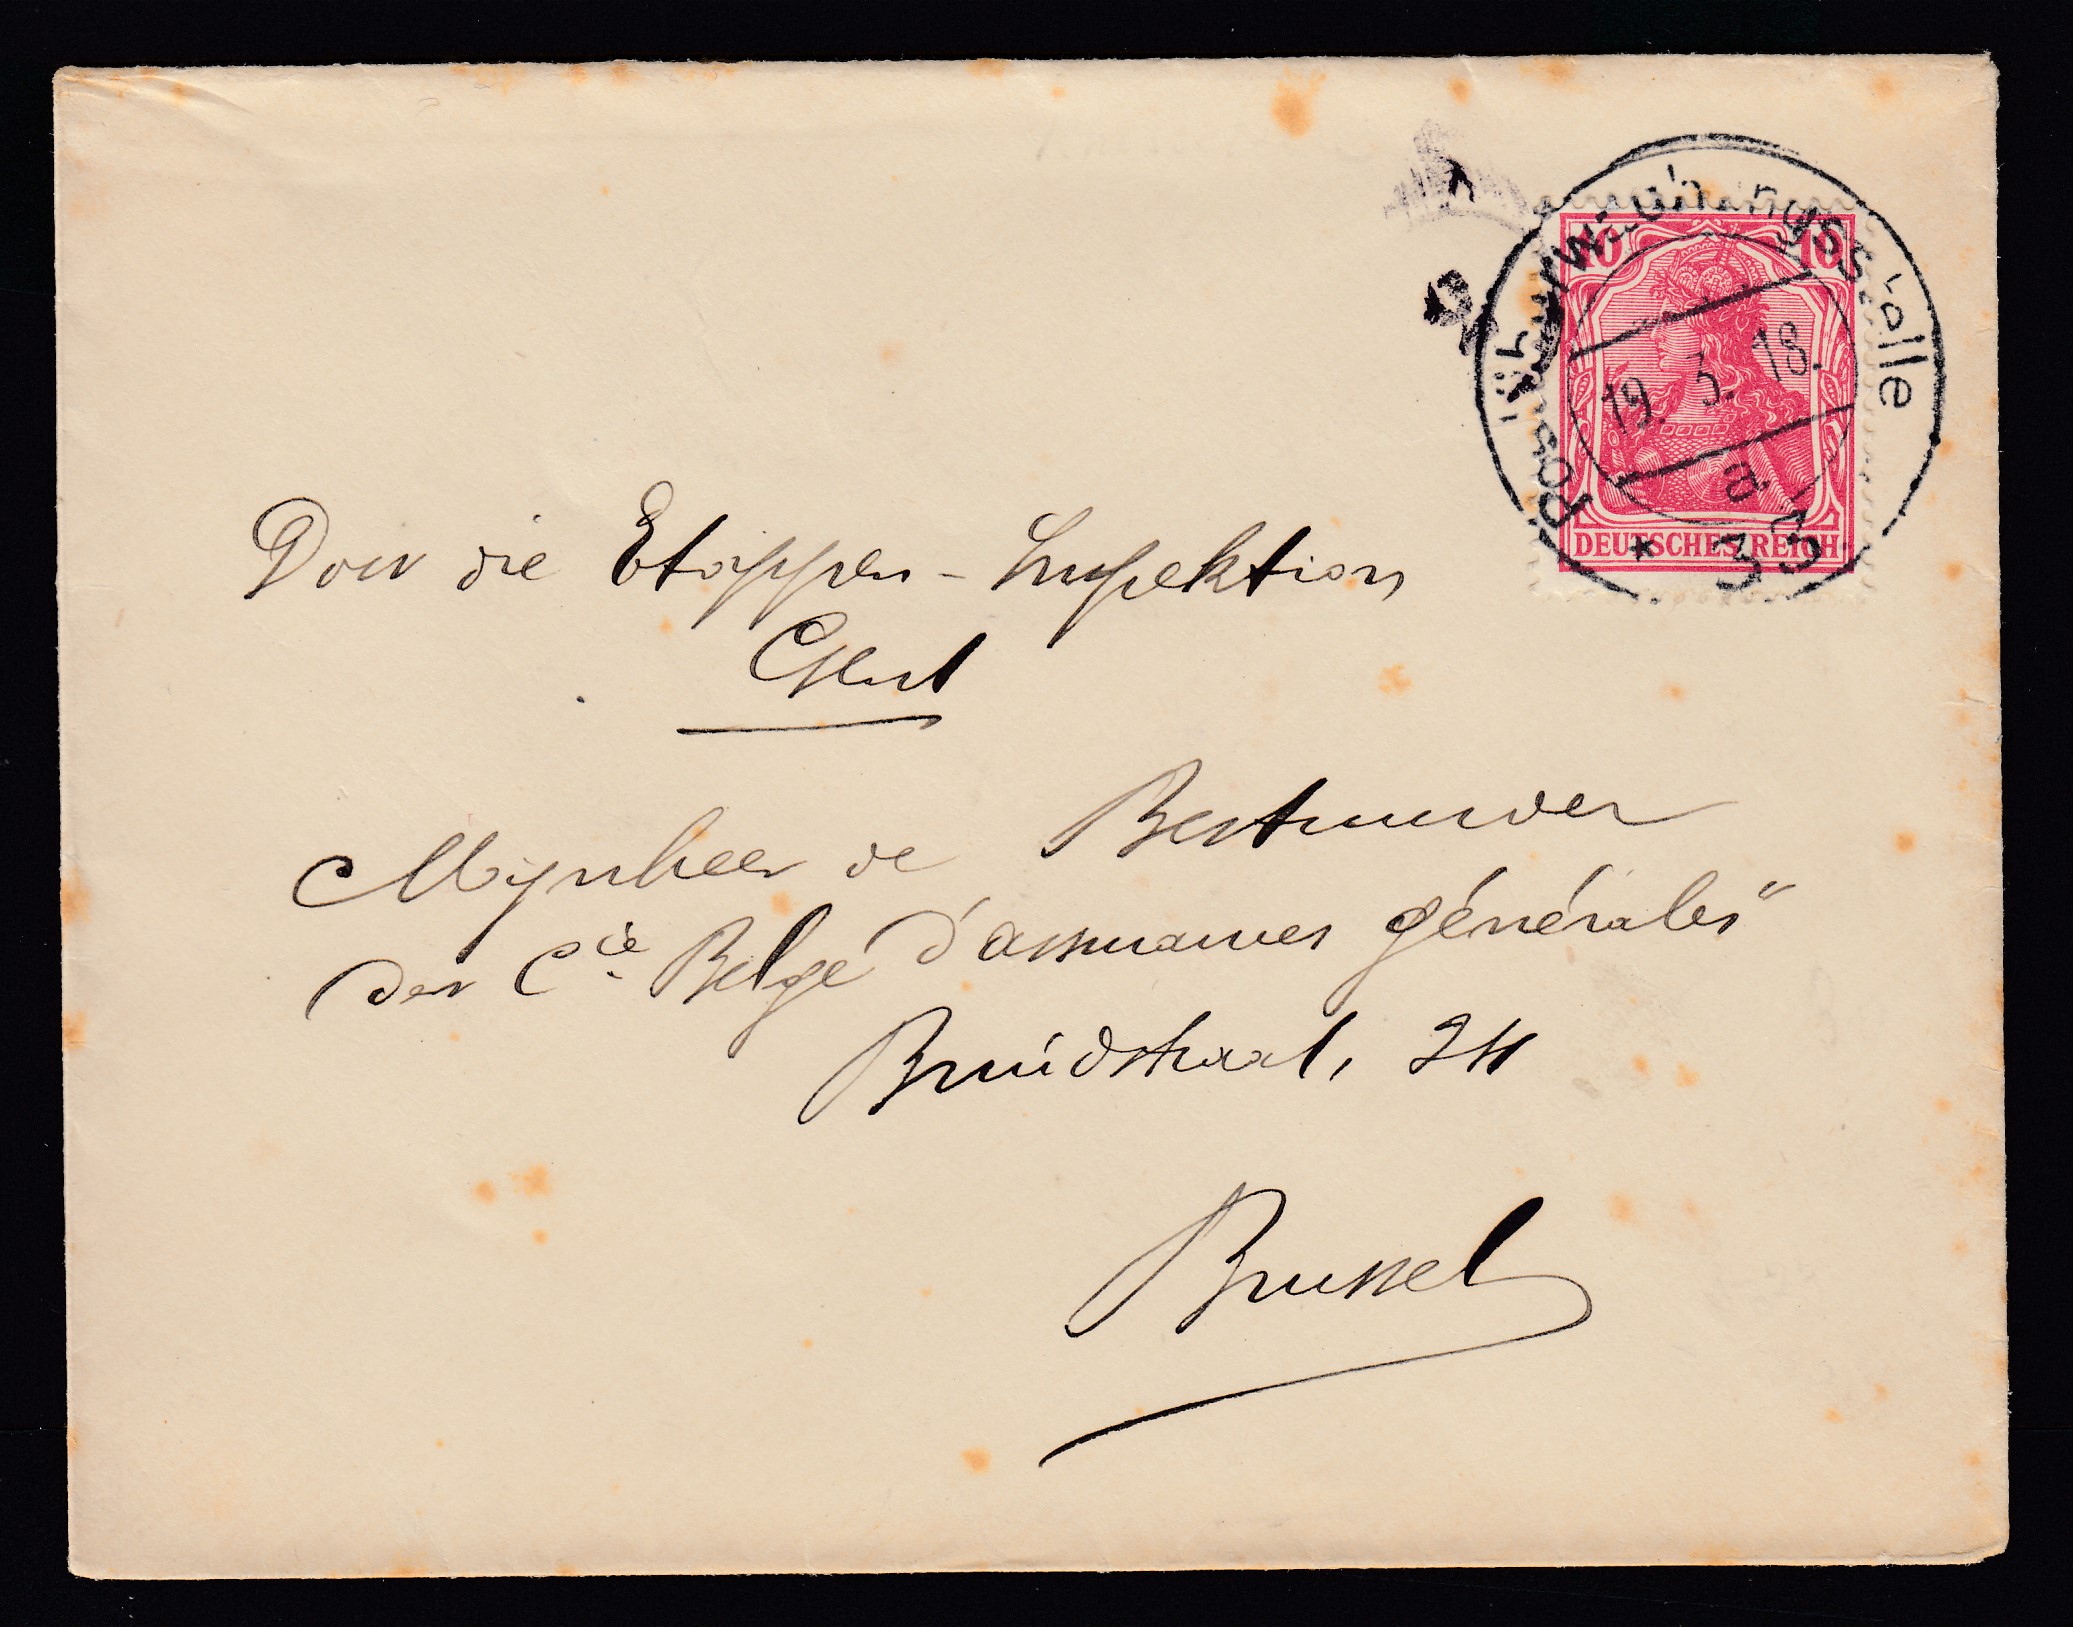 10 10
Postüberwachungsstelle
19. 3. 18.
a
* 33
DEUTSCHES REICH
Door die Etappen-Inspektion
Gent
Mynheer de Bestuurder
der Cie Belge d'assurances générales"
Bruidstraat, 24
Brussel